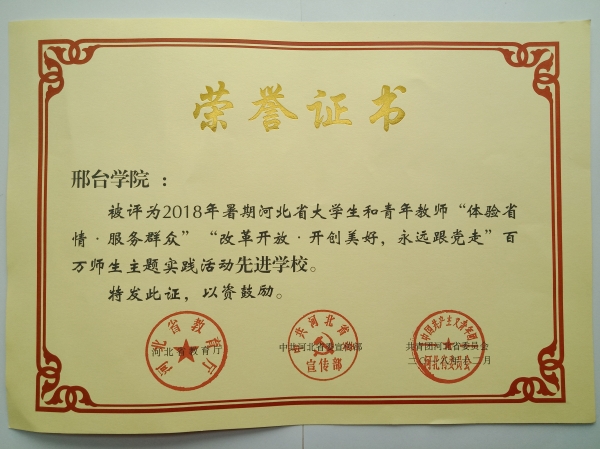 荣誉证书
邢台学院：
被评为2018年暑期河北省大学生和青年教师“体验省
情·服务群众”“改革开放·开创美好，永远跟党走”百
万师生主题实践活动先进学校。
特发此证，以资鼓励。
河北省教育厅
河北省教育厅
中共河北省委宣传部
中共河北省委
宣传部
共青团河北省委员会